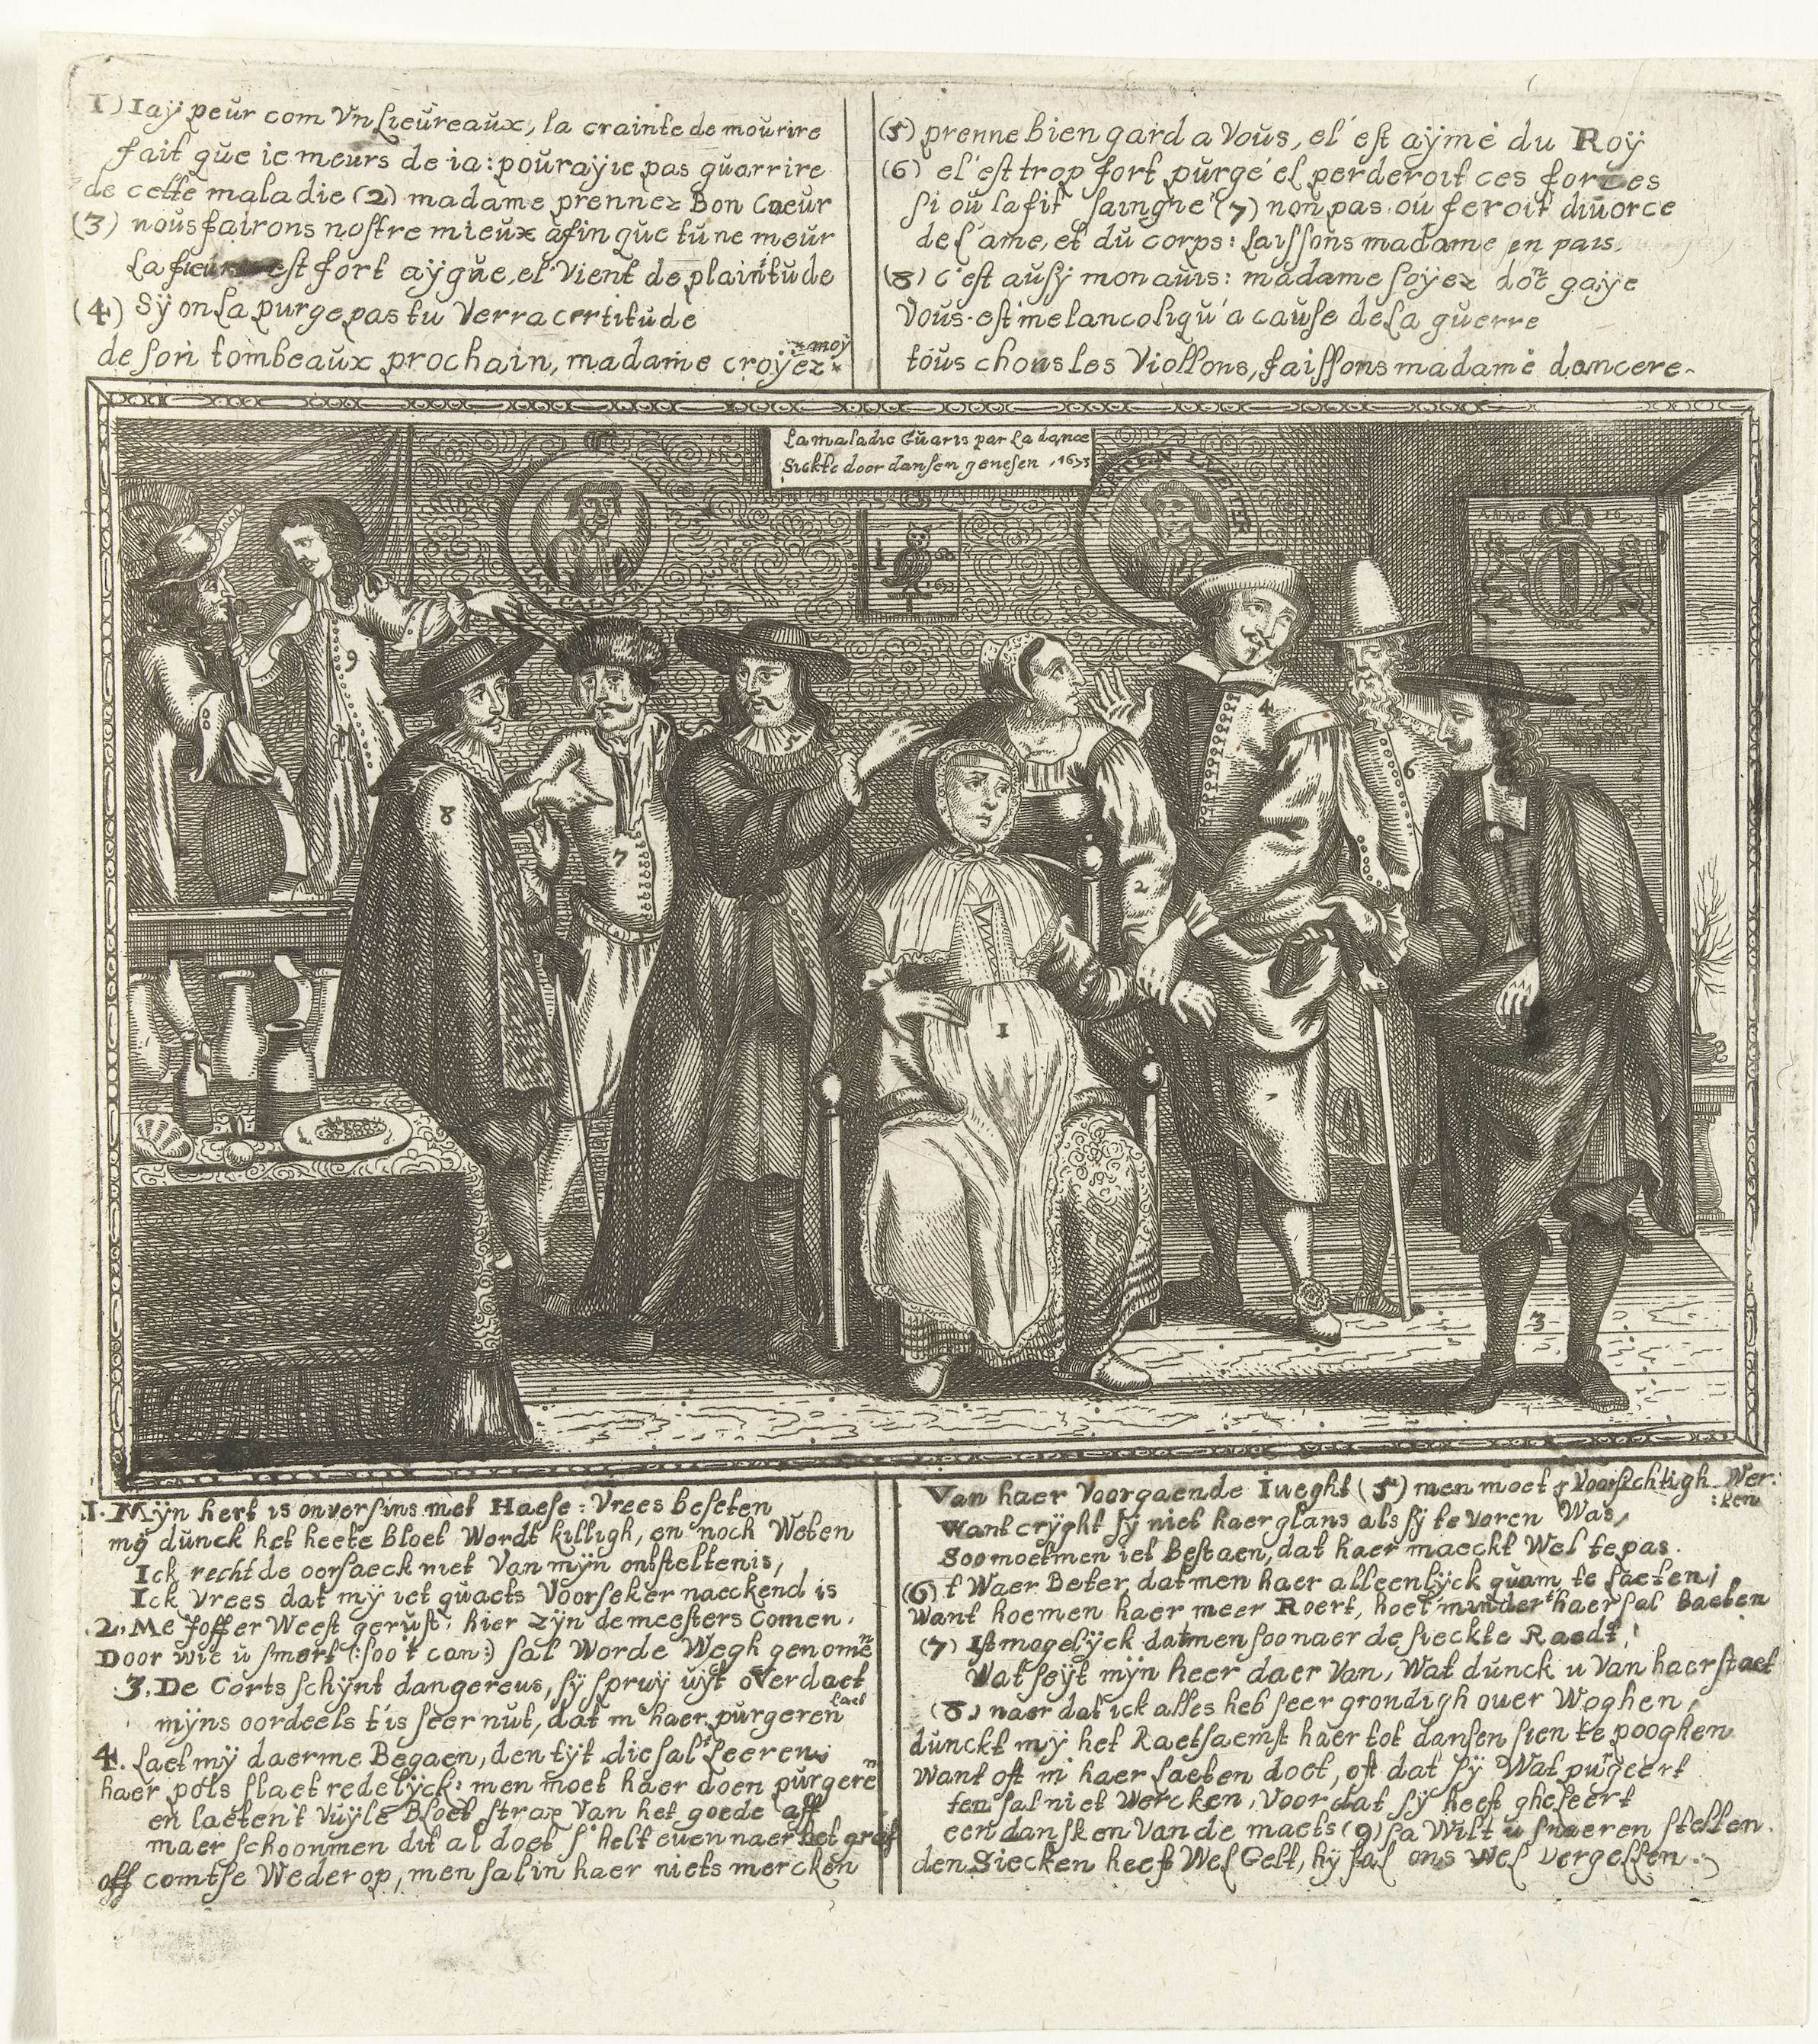 1) Iaÿ peur com Vn Lieureaux, la crainte de mourire
fait que ie meurs de ia: pouraÿie pas guarrire
de cette maladie (2) madame prennez Bon Coeur
(3) nous fairons nostre mieux afin que tu ne meur
La est fort aÿgue, el' vient de plaintude
(4) Sÿ on La purge pas tu Verra certitude
de son tombeaux prochain, madame croÿez moÿ
(5) prenne bien gard a Vous, el' est aÿmé du Roÿ
(6) el' est trop fort purgé el perderoit ces forces
si ou la fit saingne (7) non pas ou feroit diuorce
de l'ame, et du corps: laissons madame en pais
(8) c'est ausÿ mon auis: madame soÿez don gaÿe
Vous est melancoliqu' a cause de La guerre
tous chous les Viollons, faissons madame dancere
La maladie Guaris par La dance
Sickte door dansen genesen, 1673
JAN CALVIN
MERTEN LUTER
ANNO 1673
9
8
7
4
6
2
1
3
1. Mÿn hert is onversins met Haese-Vrees beseten
mÿ dunck het heete bloet Wordt killigh, en noch Weten
Ick recht de oorsaeck niet Van mÿn ontsteltenis,
Ick Vrees dat mÿ iet quaets Voorseker naeckend is
2. Me Joffer Weest gerust, hier zÿn de meesters Comen,
Door wie u smert (:soo't can:) sal Worde Wegh genomen
3. De Corts schÿnt dangereus, sÿ spruÿ uÿt oVerdaet
mÿns oordeels t'is seer nut, dat m' haer purgeren laet
4. Laet mÿ daerme Begaen, den tÿt die sal't Leeren
haer pols slaet redelÿck: men moet haer doen purgeren
en laeten't Vuÿle Bloet strax Van het goede aff
maer schoonmen dit al doet s'helt euen naer het graf
off comtse Weder op, men sal in haer niets mercken
Van haer Voorgaende Iueght (5) men moet Voorsichtigh Wercken
Want crÿght sÿ niet haer glans als sÿ te voren Was,
Soo moetmen iet Bestaen, dat haer maeckt Wel te pas.
(6) t Waer Beter, datmen haer alleenlÿck quam te laeten;
Want hoemen haer meer Roert, hoe't minder haer sal Baeten
(7) Ist mogelÿck datmen soo naer de sieckte Raedt,
Wat seÿt mÿn heer daer Van, Wat dunck u Van haer staet
(8) naer dat ick alles heb seer grondigh ouer Woghen,
dunckt mÿ het Raetsaemst haer tot dansen sien te pooghen
Want oft m' haer laeten doet, oft dat sÿ Wat purgeert
ten sal niet Wercken, Voor dat sÿ heeft gheleert
een dansken Van de maets (9) sa Wilt u snaeren stellen.
den Siecken heeft Wel Gelt, hÿ sal ons Wel vergellen.